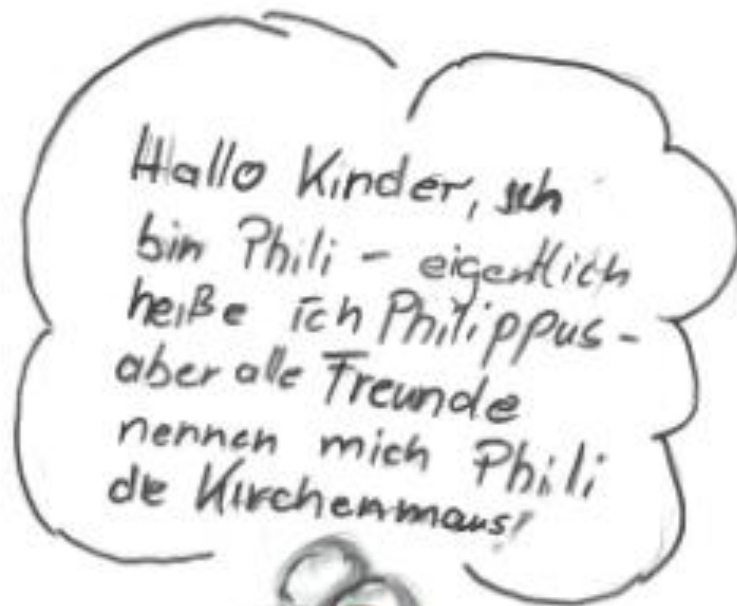 Hallo Kinder, ich
bin Phili - eigentlich
heiße ich Philippus -
aber alle Freunde
nennen mich Phili
die Kirchenmaus!